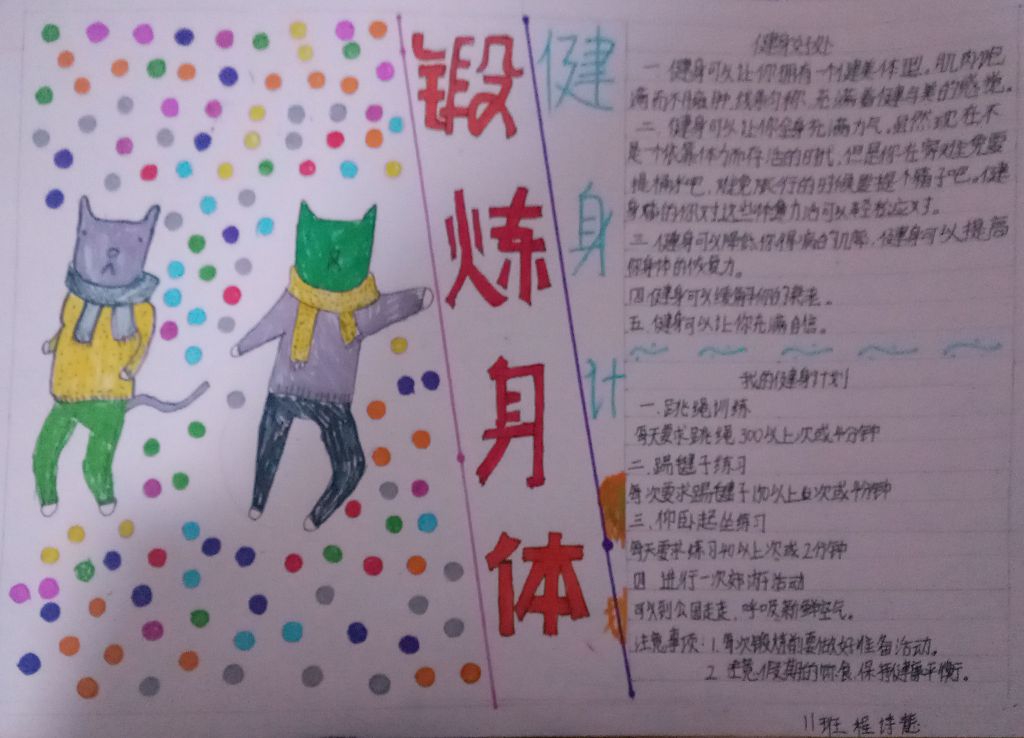 锻炼身体
健身计划
健身好处
一.健身可以让你拥有一个健美体型。肌肉饱
满而不臃肿,线条匀称,充满着健与美的感觉。
二.健身可以让你全身充满力气。虽然现在不
是个依靠体力而存活的时代,但是你在家难免要
提桶水吧,难免旅行的时候要提个箱子吧。健
身后的你对这些体力活可以轻松应对。
三.健身可以降低你得病的几率,健身可以提高
你身体的恢复力。
四.健身可以缓解你的衰老。
五.健身可以让你充满自信。
我的健身计划
一.跳绳训练
每天要求跳绳300以上次或4分钟
二.踢毽子练习
每次要求踢毽子150以上次或4分钟
三.仰卧起坐练习
每天要求练习40以上次或2分钟
四 进行一次郊游活动
可以到公园走走,呼吸新鲜空气。
注意事项:1.每次锻炼前要做好准备活动。
2.注意假期的饮食,保持健康平衡。
11班 程诗慧